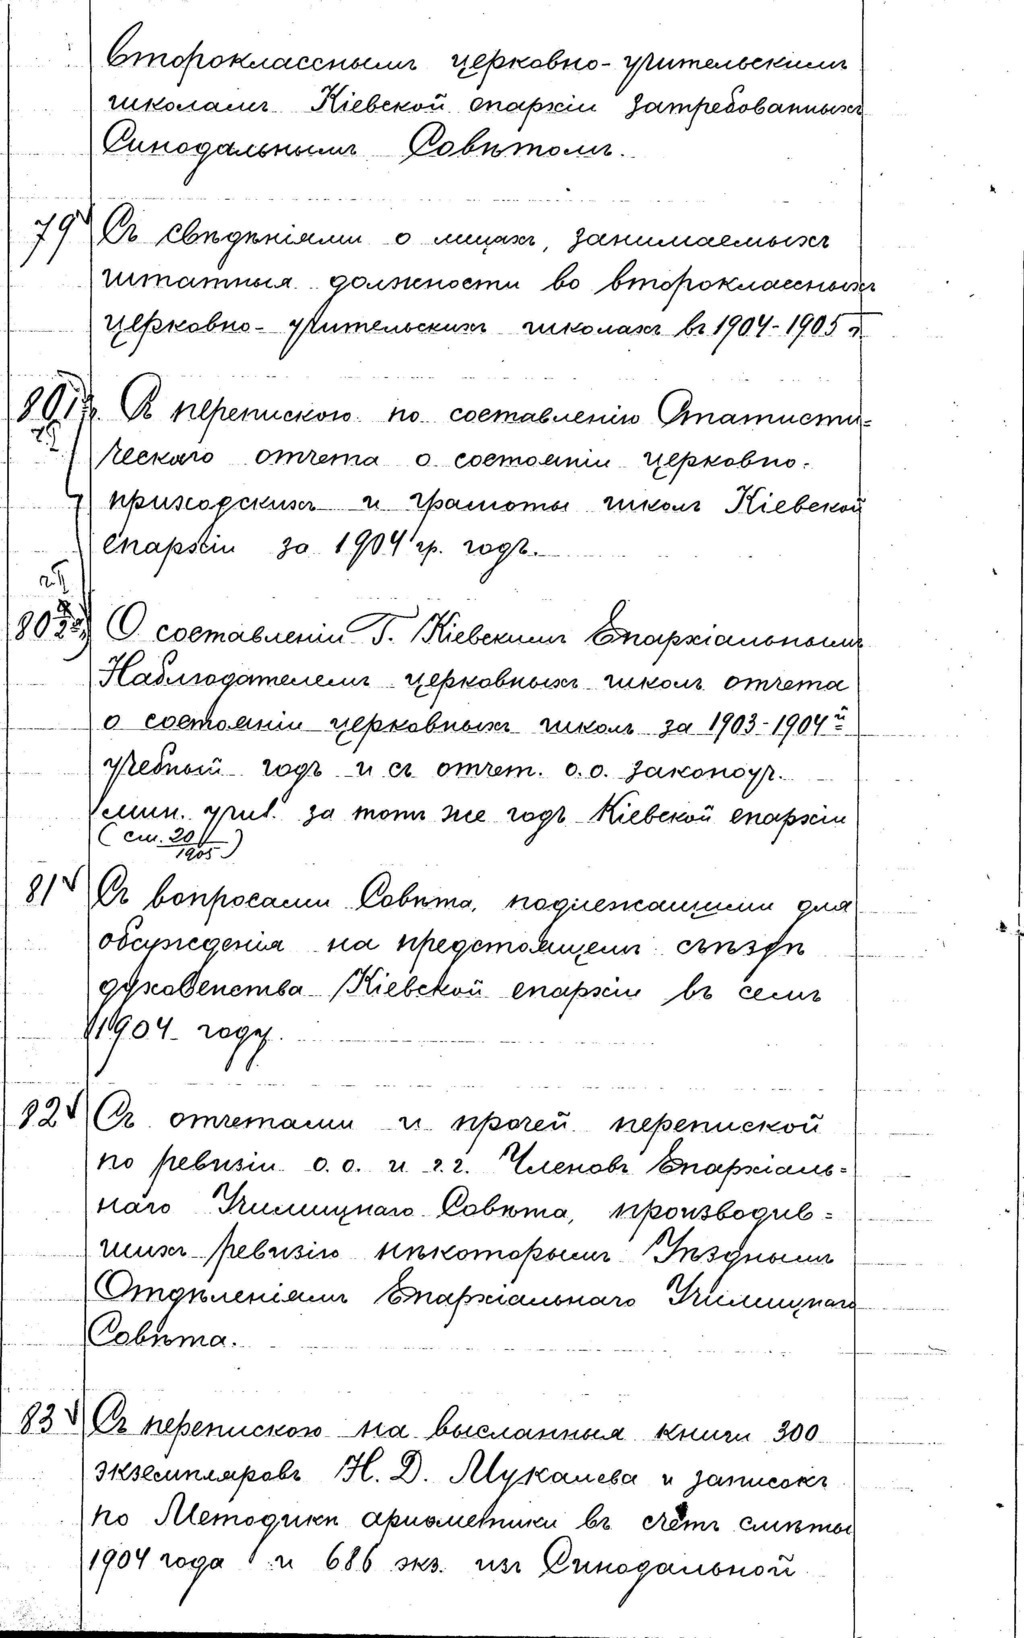 второкласснымъ церковно-учительскимъ
школамъ Кіевской епархіи затребованныхъ
Синодальнымъ Совѣтомъ.
79 Съ свѣдѣніями о лицахъ, занимаемыхъ
штатныя должности во второклассныхъ
церковно-учительскихъ школахъ въ 1904-1905 г.
80 Съ перепискою по составленію Статисти=
ческаго отчета о состояніи церковно-
приходскихъ и грамоты школъ Кіевской
епархіи за 1904 гр. годъ.
80 О составленіи Г. Кіевскимъ Епархіальнымъ
Наблюдателемъ церковныхъ школъ отчета
о состояніи церковныхъ школъ за 1903-1904й
учебный годъ и съ отчет. о.о. законоуч.
мин. учил. за тотъ же годъ Кіевской епархіи
(см. 20/1905)
81 Съ вопросами Совѣта, подлежащими для
обсужденія на предстоящемъ съѣздѣ
духовенства Кіевской епархіи въ семъ
1904 году.
82 Съ отчетами и прочей перепиской
по ревизіи о.о. и г.г. Членовъ Епархіаль=
наго Училищнаго Совѣта, производив=
шихъ ревизію нѣкоторымъ Уѣзднымъ
Отдѣленіямъ Епархіальнаго Училищнаго
Совѣта.
83 Съ перепискою на высланныя книги 300
экземпляровъ Н. Д. и записокъ
по Методикѣ ариѳметики въ счетъ смѣты
1904 года и 686 экз. изъ Синодальной